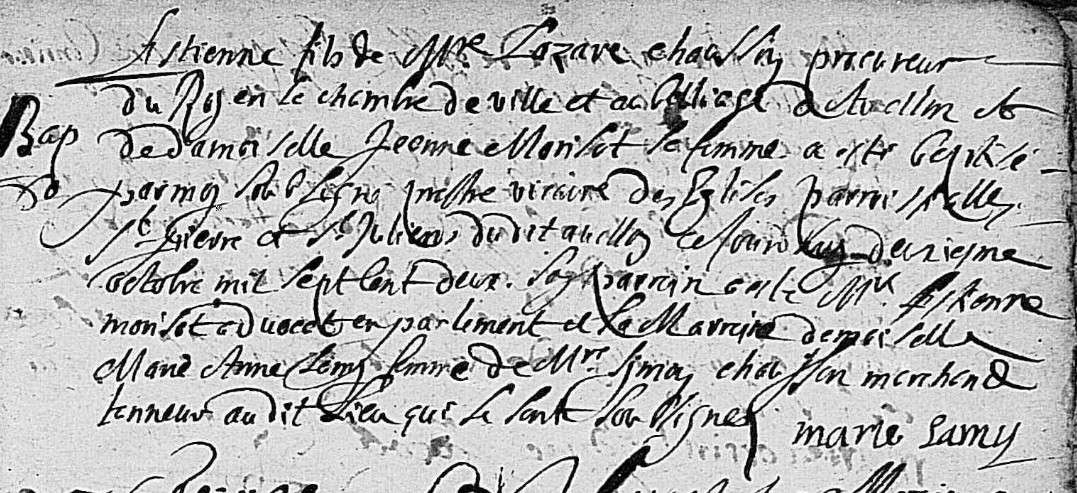 Estienne fils de Mre Lazare chaussin procureur
du Roy en la chambre de ville et au belliage d'Avallon et
Bap de damoiselle Jeanne Morisot sa femme a esté baptisé
par moy soubsigné prestre vicaire des Eglises parroissialles
St Pierre et St Julien dudit avallon ce jourdhuy deuxiesme
octobre mil sept cent deux. Son parrain a esté Mre Estienne
morisot advocat en parlement et la Marraine damoiselle
Marie Anne Lamy femme de Mre simon chausson marchand
tanneur audit lieu qui se sont soubsignes
marie Lamy